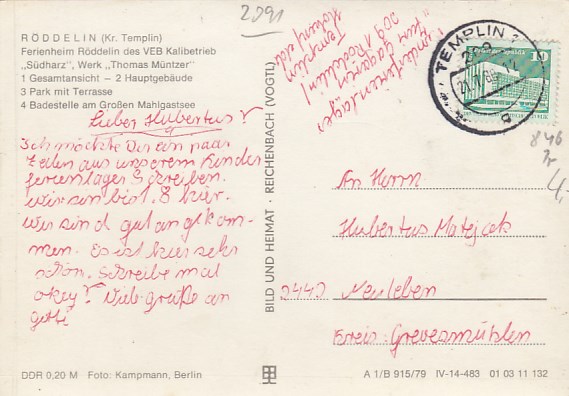 2091
RÖDDELIN (Kr. Templin)
Ferienheim Röddelin des VEB Kalibetrieb
„Südharz", Werk „Thomas Müntzer"
1 Gesamtansicht – 2 Hauptgebäude
3 Park mit Terrasse
4 Badestelle am Großen Mahlgastsee
Lieber Hubertus!
Ich möchte Dir ein paar
Zeilen aus unserem Kinder
ferienlager Schreiben.
Wir sind bis 1. 8 hier.
Wir sind gut angekom-
men. Es ist hier sehr
schön. Schreibe mal
okay? Viele grüße an
DDR 0,20 M Foto: Kampmann, Berlin
BILD UND HEIMAT · REICHENBACH (VOGTL)
Kinderferienlager
Gagarin
2091 Röddelin
Templin
TEMPLIN 1
209
10
DDR
846
4,-
An Herrn
Hubertus Matejcek
2442 Neuleben
Kreis: Grevesmühlen
A 1/B 915/79 IV-14-483 01 03 11 132